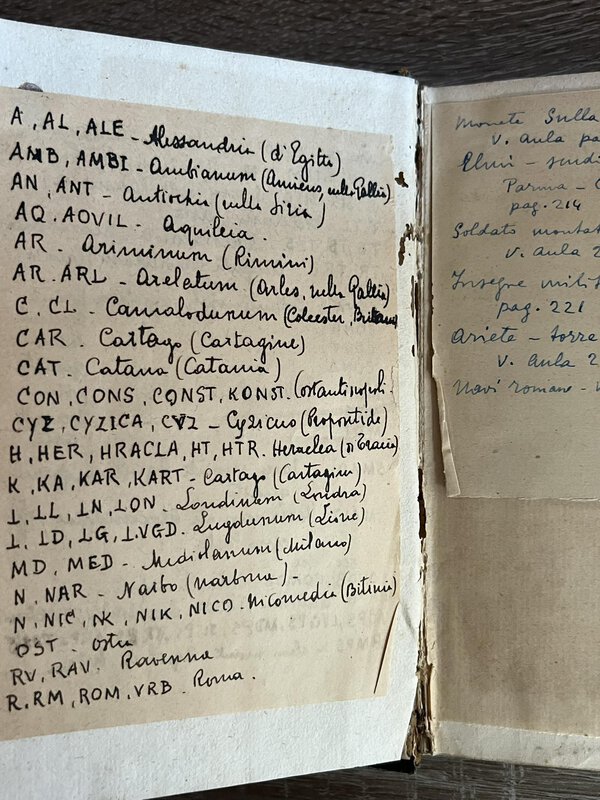 A, AL, ALE - Alessandria (d'Egitto)
AMB, AMBI - Ambianum (Amiens, nelle Gallie)
AN, ANT - Antiochia (nella Siria)
AQ. AOVIL - Aquileia.
AR - Ariminum (Rimini)
AR. ARL - Arelatum (Arles, nelle Gallie)
C, CL - Camalodunum (Colcester, Britannia
CAR - Cartago (Cartagine)
CAT - Catana (Catania)
CON, CONS, CONST, KONST. Costantinopoli
CYZ, CYZICA, CVZ - Cyzicus (Propontide)
H, HER, HRACLA, HT, HTR. Heraclea (in Tracia)
K, KA, KAR, KART - Cartago (Cartagine)
L, LL, LN, LON - Londinum (Londra)
L, LD, LG, LVGD. Lugdunum (Lione)
MD, MED - Mediolanum (Milano)
N, NAR - Narbo (Narbona) -
N, NIC, NK, NIK, NICO - Nicomedia (Bitinia)
OST - Ostia
RV, RAV. Ravenna
R. RM, ROM, VRB - Roma.
Monete Sulla
V. Aula pa
Elmi -
Parma -
pag. 214
Soldato montat
V. Aula 2
Insegne milit
pag. 221
Ariete - torre
V. Aula 2
Navi romane -